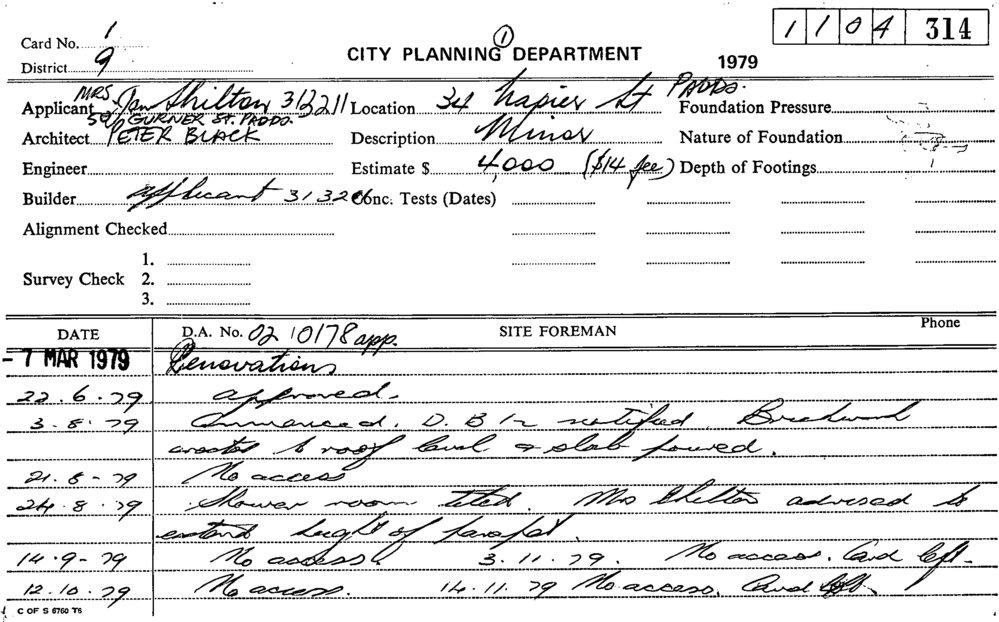 1 1 0 4 314
Card No. 1
CITY PLANNING DEPARTMENT 1
District 9 1979
Applicant MRS Jan Shilton 313211 Location 34 Napier St PADDO. Foundation Pressure
50 GURNER ST. PADDO.
Architect PETER BLACK Description Minor Nature of Foundation
Engineer Estimate $ 4,000 ($14 fee) Depth of Footings
Builder applicant 3132 Conc. Tests (Dates)
Alignment Checked
1.
Survey Check 2.
3.
DATE D.A. No. 02 10178 app. SITE FOREMAN Phone
- 7 MAR 1979 Renovations
22.6.79 approved.
3.8.79 Commenced. D.B.I. notified. Brickwork
erected to roof level & slab poured.
21.8-79 No access
24.8.79 Shower room tiled. Mrs Shilton advised to
extend height of parapet.
14.9-79 No access. 3.11.79. No access. Card left.
12.10.79 No access. 14.11.79 No access. Card left.
C OF S 6760 T6